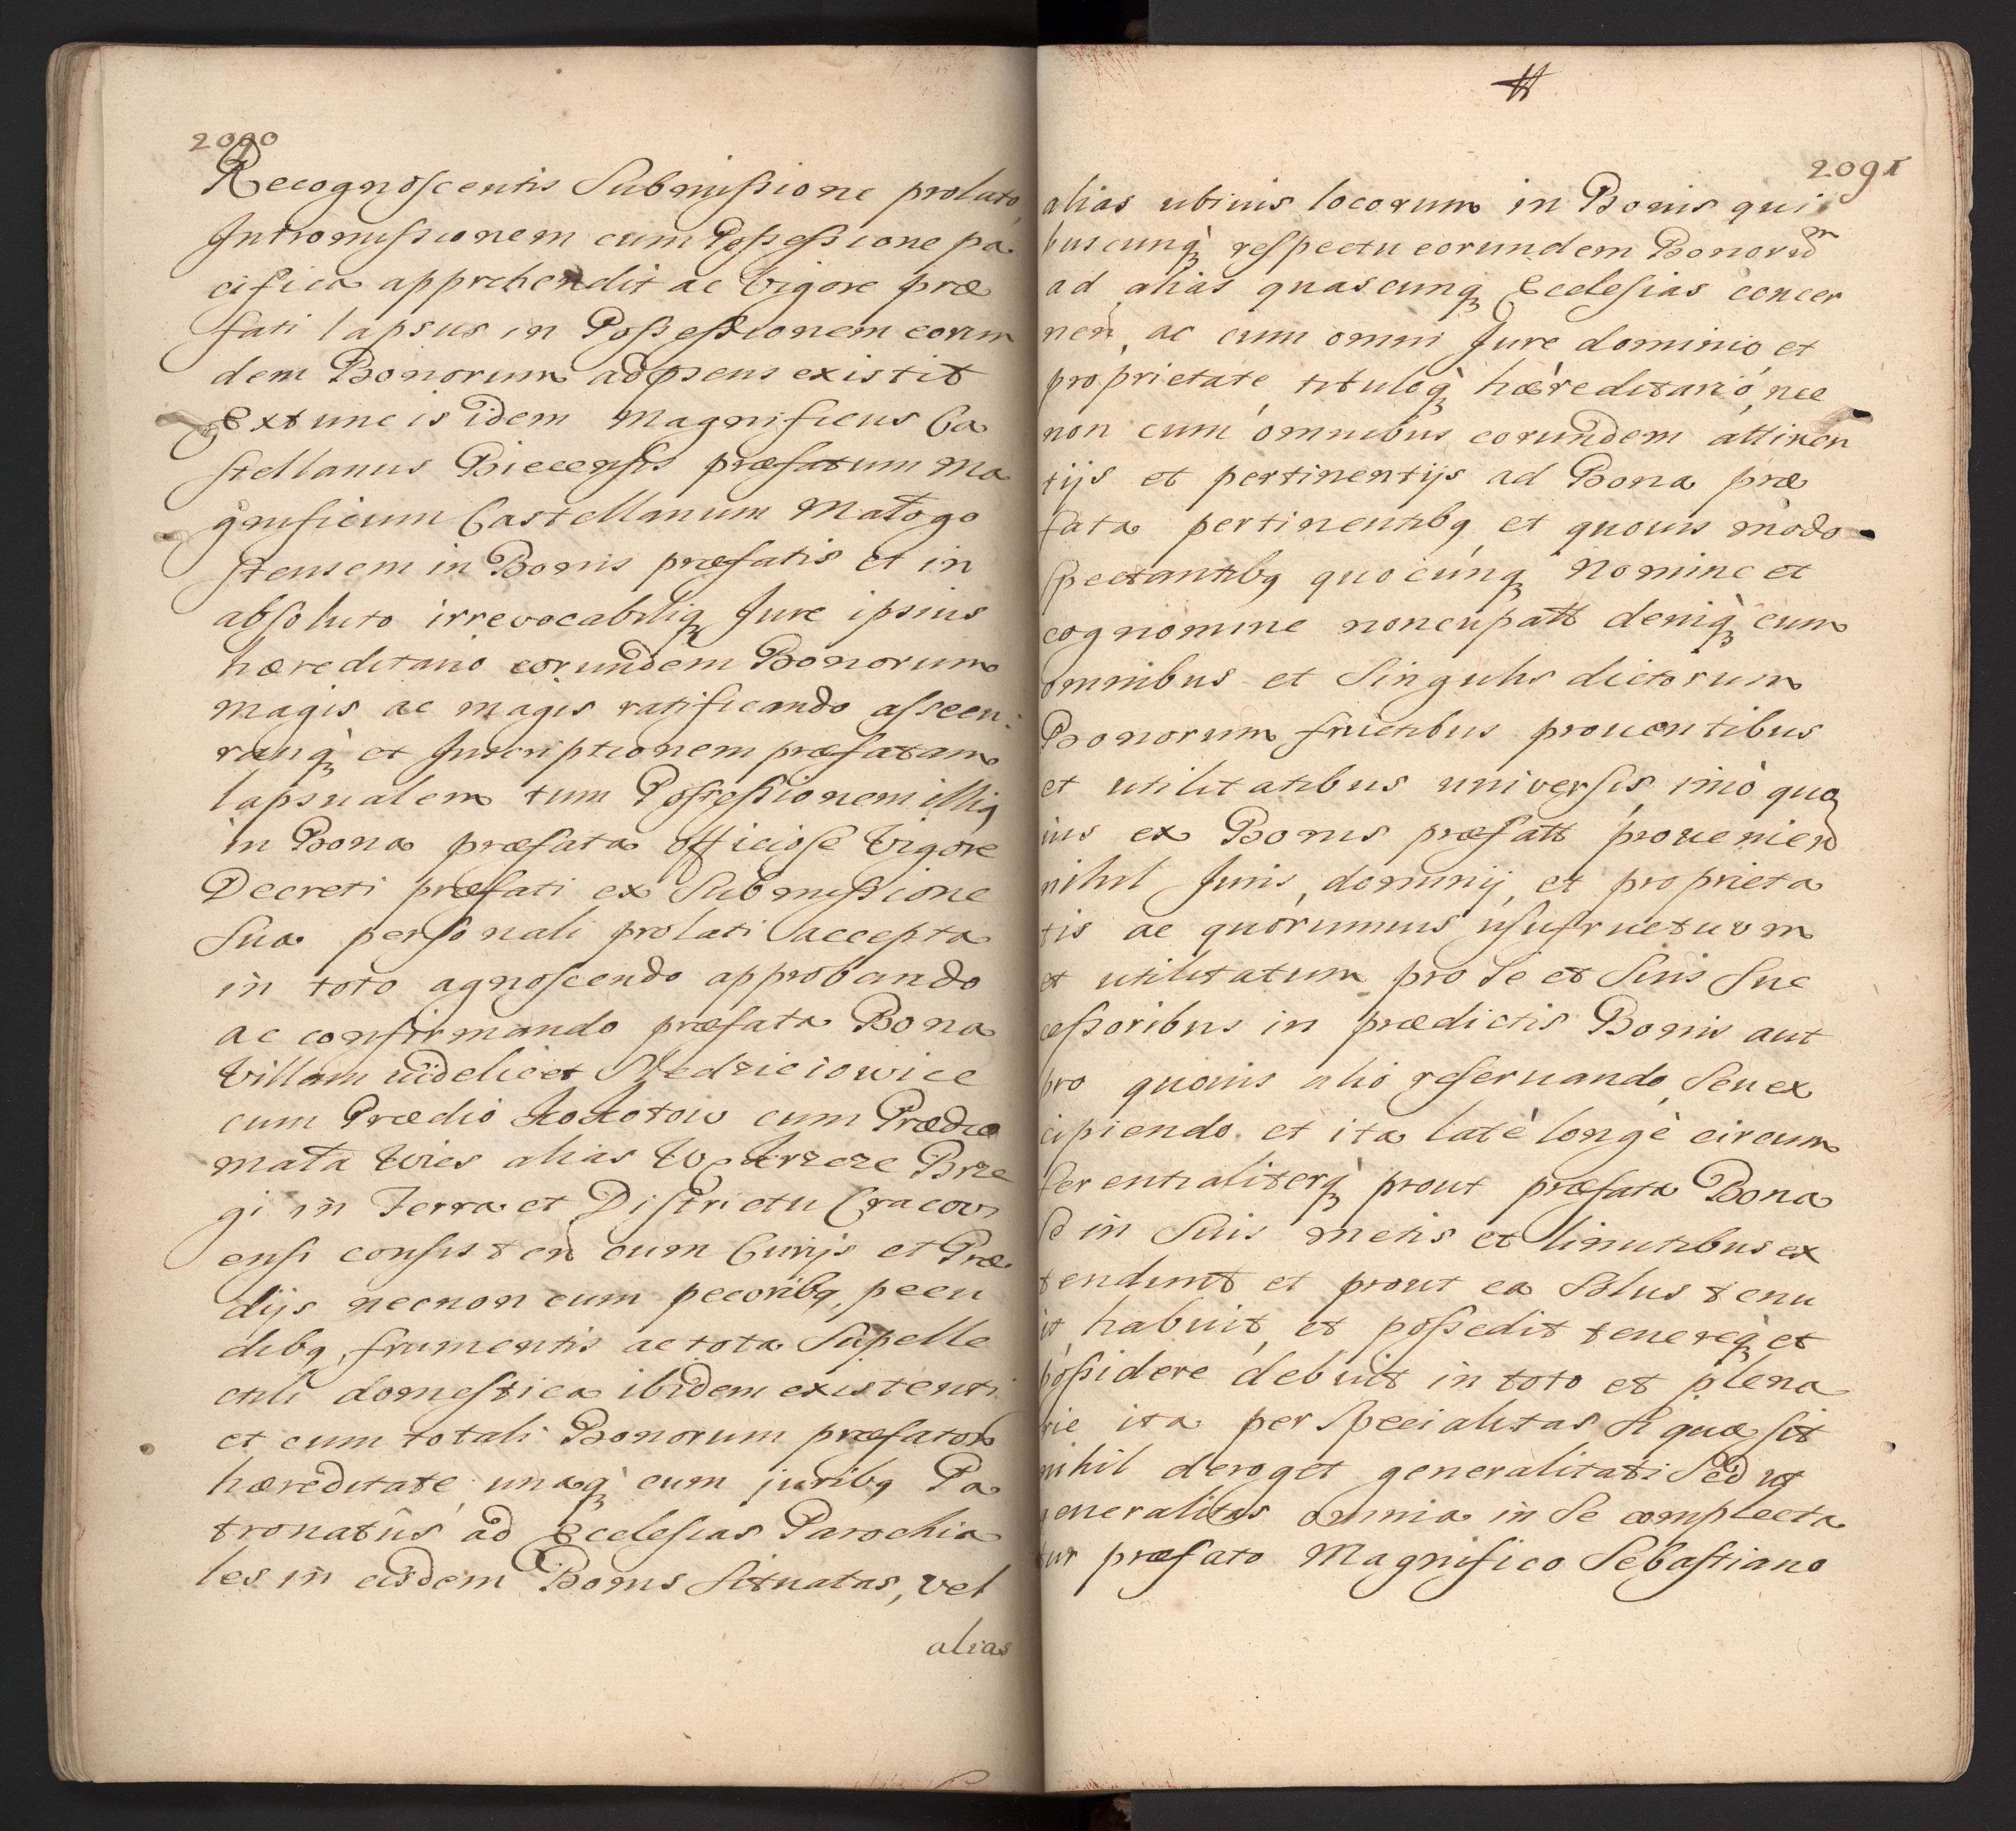 2090
Recognoscentis Submissione prolato,
Intromissionem cum Possessione pa
cifica apprehendit ac Vigore præ
fati lapsus in Possessionem eorun
dem Bonorum adpsens existit
Extunc is idem Magnificus Ca
stellanus Biecensis præfatum Ma
gnificum Castellanum Małogo
stensem in Bonis præfatis et in
absoluto irrevocabiliq Jure ipsius
hæreditario eorundem Bonorum
magis ac magis ratificando assecu
ranq et Inscriptionem præfatam
lapsualem tum Possessionem illiq
in Bona præfata officiose Vigore
Decreti præfati ex Submissione
Sua personali prolati accepta
in toto agnoscendo approbando
ac confirmando præfata Bona
Villam uidelicet Niedzieciowice
cum Prædio Kokotow cum Prædio
mała Wies alias Wękrzcze Brze
gi in Terra et Districtu Cracovi
ensi consisten cum Curijs et Præ
dijs necnon cum pecoribq, pecu
dibq, frumentis ac tota Supelle
ctili domestica ibidem existenti
et cum totali Bonorum præfator
hæreditate, unaq cum juribq Pa
tronatûs ad Ecclesias Parochia
les in eisdem Bonis Situatas, vel
alias
2091
alias ubiuis locorum in Bonis qui
buscunq respectu eorundem Bonorum
ad alias quascunq Ecclesias concer
nen, ac cum omni Jure dominio, et
proprietate, tituloq hæreditario, nec
non cum omnibus eorundem attinen
tijs et pertinentijs ad Bona præ
fata pertinentibq et quouis modo
Spectantibq quocunq Nomine et
cognomine noncupatt deniq cum
omnibus et Singulis dictorum
Bonorum fructibus prouentibus
et utilitatibus universis, imò quo
uis ex Bonis præfatt prouenien
nihil Juris, dominij, et proprieta
tis ac quorumuis usufructuum
et utilitatum pro Se et Suis Suc
cessoribus in prædictis Bonis aut
pro quouis alio reseruando, Seu ex
cipiendo et ita latè longè circum
ferentialiterq prout præfata Bona
in Suis metis et limitibus ex
tendunt et prout ea Solus tenu
it, habuit, et possedit tenereq et
possidere debuit in toto et plena
rie ita per Specialitas Si quæ sit
nihil deroget generalitati Sed ut
generalitas omnia in Se complecta
tur præfato Magnifico Sebastiano